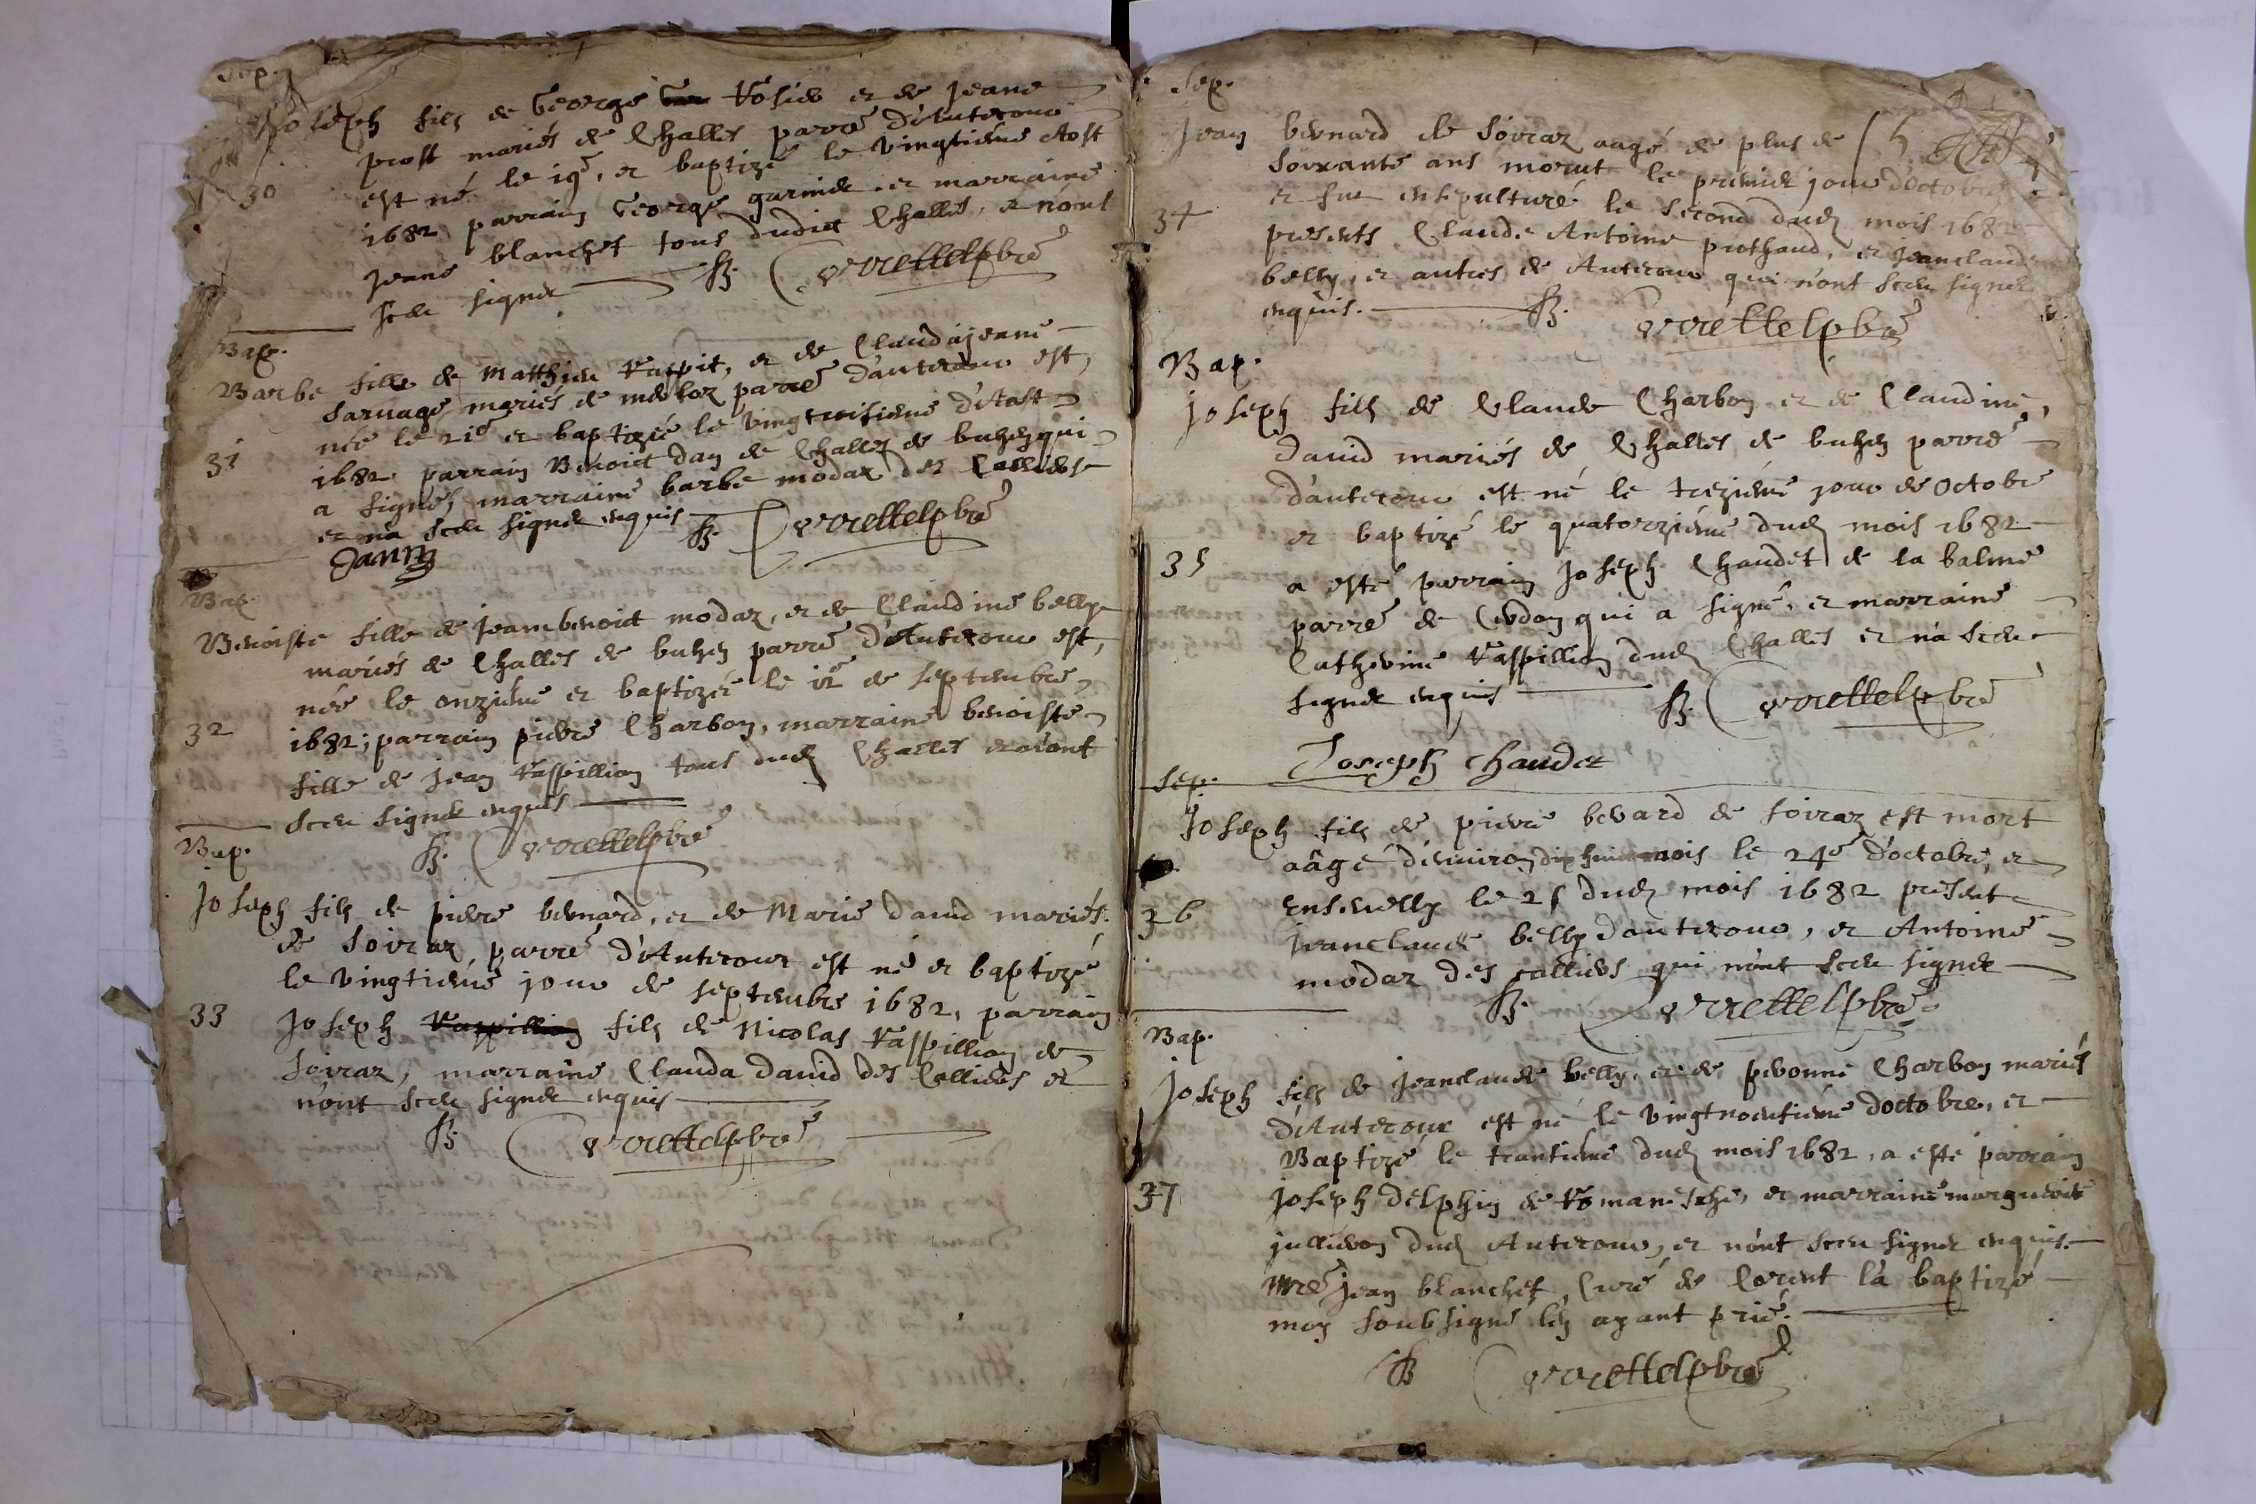 Sep.
Joseph fils de George Rosier et de Jeane
prost mariés de Challes parré d'Auterour
30
est né le 19e, et baptizé le vingtieme Aost
1682, parrain George garnier et marraine
Jeane blanchet tous dudict Challes, et n'ont
sceu signer
Bap.
Barbe fille de Matthieu et de Claudajeane
Saruage mariés de parré d'auterour est,
née le 21e et baptizée le vingtroisieme d'Aost
31
1682 parrain Benoict Dan de Challes de buhen qui
a signé, marraine barbe modaz des Colliers
et n'a sceu signer enquis
Danin
Bap.
Benoiste fille de Jeambenoict modaz, et de Claudine belly
mariés de Challes de buhen parré d'Auterour est,
née le onzieme et baptizée le 12e de septembre
32
1682; parrain pierre Charbon, marraine benoiste
fille de Jean Raspillion tous dud Challes et n'ont
sceu signer enquis
Bap.
Joseph fils de pierre bernard, et de Marie David mariés
de Soiraz, parré d'Auterour est né et baptizé
le vingtieme jour de septembre 1682, parrain
33
Joseph Raspillion fils de Nicolas Raspillion de
Soiraz, marraine Clauda David des Colliers et
n'ont sceu signer enquis
Sep.
Jean bernard de Soiraz aagé de plus de
soixante ans morut le premier jour d'octobre
et fut ensepulturé le second dud mois 1682
34
presents Claude Antoine prothaud, et Jeanclaude
belly, et autres de Auterour qui n'ont sceu signer
enquis.
Bap.
Joseph fils de Claude Charbon et de Claudine,
David mariés de Challes de buhen parré
d'auterour est né le trezieme jour de Octobre
et baptizé le quatorzieme dud mois 1682
35
a esté parrain Joseph Chaudet de la balme
parré de Cerdon qui a signé, et marraine
Catherine Raspillion dud Challes et n'a sceu
signer enquis
Joseph Chaudet
Sep.
Joseph fils de pierre berard de Soiraz est mort
aâgé d'enuiron dix huict mois le 24e d'octobre, et
36
enseuelly le 25 dud mois 1682 present
Jeanclaude belly d'auterour, et Antoine
modaz des colliers qui n'ont sceu signer
Bap.
Joseph fils de Jeanclaude belly, et de pernonne Charbon mariés
d'Auterour est né le vingtneufieme d'octobre, et
Baptizé le trantieme dud mois 1682, a esté parrain
37
Joseph Delphin de Romanesche, et marraine marguerite
jullieron dud Auterour, et n'ont sceu signer enquis.
mre Jean blanchet, Curé de l'a baptizé
moy soubsigné l'en ayant prié.